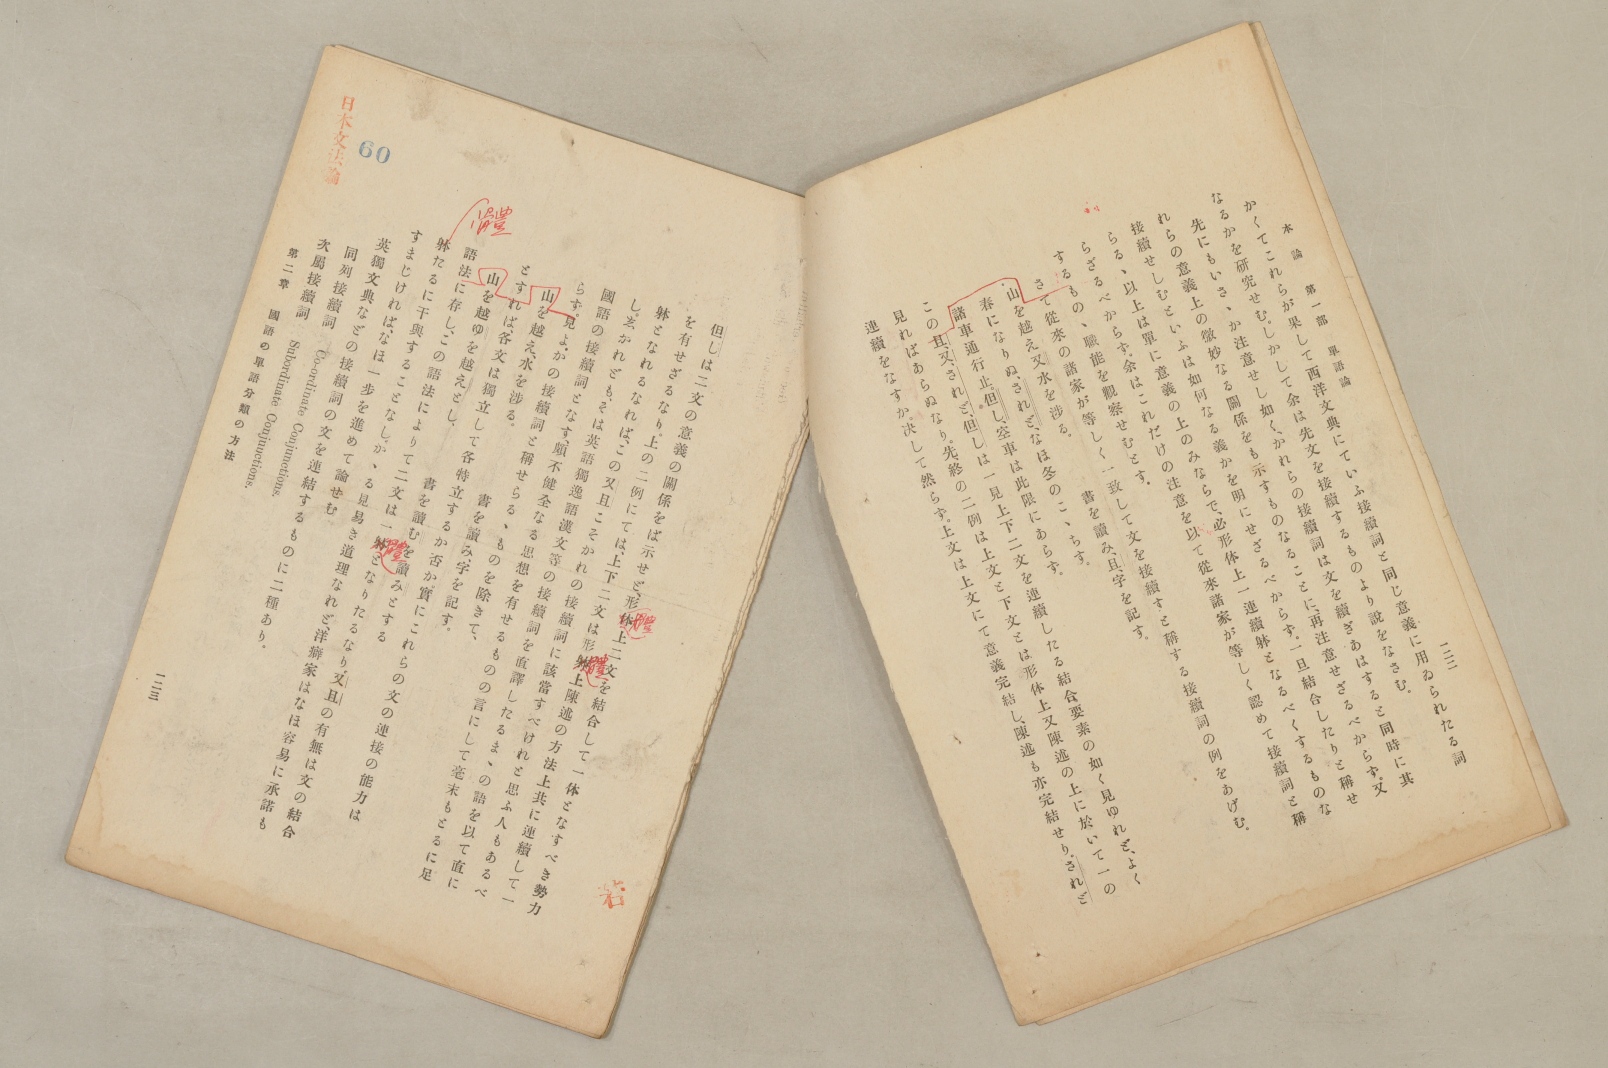 本論　第一部　單語論
一二二
かくてこれらが果して西洋文典にていふ接續詞と同じ意義に用ゐられたる詞
なるかを研究せむ。しかして余は先文を接續するものより說をなさむ。
先にもいさゝか注意せし如く、かれらの接續詞は文を續ぎあはすると同時に其
れらの意義上の微妙なる關係をも示すものなることに、再注意せざるべからず。又
接續せしむといふは如何なる義かを明にせざるべからず。一旦結合したりと稱せ
らるゝ以上は單に意義の上のみならで、必形体上一連續躰となるべくするものな
らざるべからず。余はこれだけの注意を以て從來諸家が等しく認めて接續詞と稱
するものゝ職能を觀察せむとす。
さて從來の諸家が等しく一致して文を接續すと稱する接續詞の例をあげむ。
山を越え又水を涉る。　書を讀み、且、字を記す。
春になりぬ。されど、なほ冬のこゝちす。
諸車通行止。但し、空車は此限にあらず。
この且、又、されど、但しは一見上下二文を連續したる結合要素の如く見ゆれど、よく
見ればあらぬなり。先終の二例は上文と下文とは形体上又陳述の上に於いて一の
連續をなすか。決して然らず。上文は上文にて意義完結し、陳述も亦完結せり。されど
但しは二文の意義の關係をば示せど、形体上二文を結合して一体となすべき勢力
を有せざるなり。上の二例にては、上下二文は形躰上陳述の方法上共に連續して一
躰となれるなれば、この又且こそかれの接續詞に該當すべけれと思ふ人もあるべ
し。志かれども、そは英語獨逸語漢文等の接續詞を直譯したるまゝの語を以て直に
國語の接續詞となす、頗不健全なる思想を有せるものの言にして毫末もとるに足
らず。見よ、かの接續詞と稱せらるゝものを除きて、
山を越え、水を涉る。　書を讀み、字を記す。
とすれば、各文は獨立して各特立するか否か。實にこれらの文の連接の能力は
山を越ゆを越えとし、　書を讀むを讀みとする
語法に存し、この語法によりて二文は一躰となりたるなり。又且の有無は文の結合
躰たるに干與することなし。かゝる見易き道理なれど、洋癖家はなほ容易に承諾も
すまじければ、なほ一步を進めて論せむ
英獨文典などの接續詞の文を連結するものに二種あり。
同列接續詞　Co-ordinate Conjunctions.
次屬接續詞　Subordinate Conjunctions.
第二章　國語の單語分類の方法
一二三
日本文法論
60
體
體
體
體